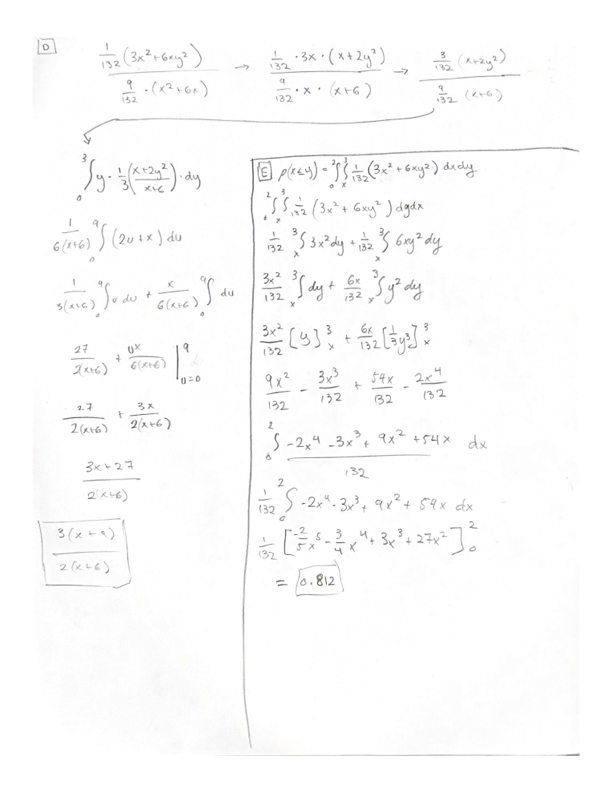 D
1/132 (3x² + 6xy²) / 9/132 · (x² + 6x) → 1/132 · 3x · (x + 2y²) / 9/132 · x · (x+6) → 3/132 (x+2y²) / 9/132 (x+6)
₀∫³ y · 1/3 (x+2y² / x+6) · dy
1/6(x+6) ₀∫⁹ (2u + x) du
1/3(x+6) ₀∫⁹ u du + x/6(x+6) ₀∫⁹ du
27/2(x+6) + ux/6(x+6) |⁹ u=0
27/2(x+6) + 3x/2(x+6)
3x+27 / 2(x+6)
3(x+9) / 2(x+6)
E p(x≤y) = ₀∫² ₓ∫³ 1/132 (3x² + 6xy²) dxdy
₀∫² ₓ∫³ 1/132 (3x² + 6xy²) dydx
1/132 ₓ∫³ 3x² dy + 1/132 ₓ∫³ 6xy² dy
3x²/132 ₓ∫³ dy + 6x/132 ₓ∫³ y² dy
3x²/132 [y]³ₓ + 6x/132 [1/3 y³]³ₓ
9x²/132 - 3x³/132 + 54x/132 - 2x⁴/132
₀∫² -2x⁴ - 3x³ + 9x² + 54x / 132 dx
1/132 ₀∫² -2x⁴ - 3x³ + 9x² + 54x dx
1/132 [-2/5 x⁵ - 3/4 x⁴ + 3x³ + 27x²]²₀
= 0.812